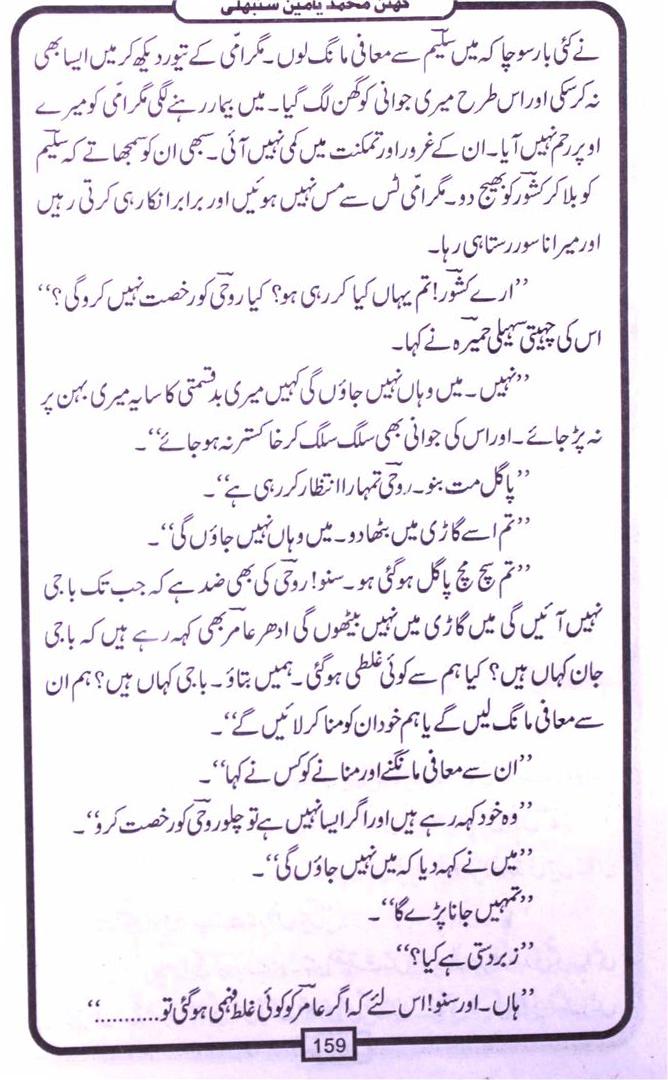 گھٹن محمد یامین سنبھلی
نے کئی بار سوچا کہ میں سلیم سے معافی مانگ لوں۔ مگر امّی کے تیور دیکھ کر میں ایسا بھی
نہ کر سکی اور اس طرح میری جوانی کو گھن لگ گیا۔ میں بیمار رہنے لگی مگر امّی کو میرے
اوپر رحم نہیں آیا۔ ان کے غرور اور تمکنت میں کمی نہیں آئی۔ سبھی ان کو سمجھاتے کہ سلیم
کو بلا کر کشور کو بھیج دو۔ مگر امّی ٹس سے مس نہیں ہوئیں اور برابر انکار ہی کرتی رہیں
اور میرا ناسور رستا ہی رہا۔
’’ارے کشور! تم یہاں کیا کر رہی ہو؟ کیا روحی کو رخصت نہیں کرو گی؟‘‘
اس کی چہیتی سہیلی حمیرہ نے کہا۔
’’نہیں۔ میں وہاں نہیں جاؤں گی کہیں میری بدقسمتی کا سایہ میری بہن پر
نہ پڑ جائے۔ اور اس کی جوانی بھی سلگ سلگ کر خاکستر نہ ہو جائے‘‘۔
’’پاگل مت بنو۔ روحی تمہارا انتظار کر رہی ہے‘‘۔
’’تم اسے گاڑی میں بٹھا دو۔ میں وہاں نہیں جاؤں گی‘‘۔
’’تم سچ مچ پاگل ہو گئی ہو۔ سنو! روحی کی بھی ضد ہے کہ جب تک باجی
نہیں آئیں گی میں گاڑی میں نہیں بیٹھوں گی ادھر عامر بھی کہہ رہے ہیں کہ باجی
جان کہاں ہیں؟ کیا ہم سے کوئی غلطی ہو گئی۔ ہمیں بتاؤ۔ باجی کہاں ہیں؟ ہم ان
سے معافی مانگ لیں گے یا ہم خود ان کو منا کر لائیں گے‘‘۔
’’ان سے معافی مانگنے اور منانے کو کس نے کہا‘‘۔
’’وہ خود کہہ رہے ہیں اور اگر ایسا نہیں ہے تو چلو روحی کو رخصت کرو‘‘۔
’’میں نے کہہ دیا کہ میں نہیں جاؤں گی‘‘۔
’’تمہیں جانا پڑے گا‘‘۔
’’زبردستی ہے کیا؟‘‘
’’ہاں۔ اور سنو! اس لئے کہ اگر عامر کو کوئی غلط فہمی ہو گئی تو...........‘‘
159